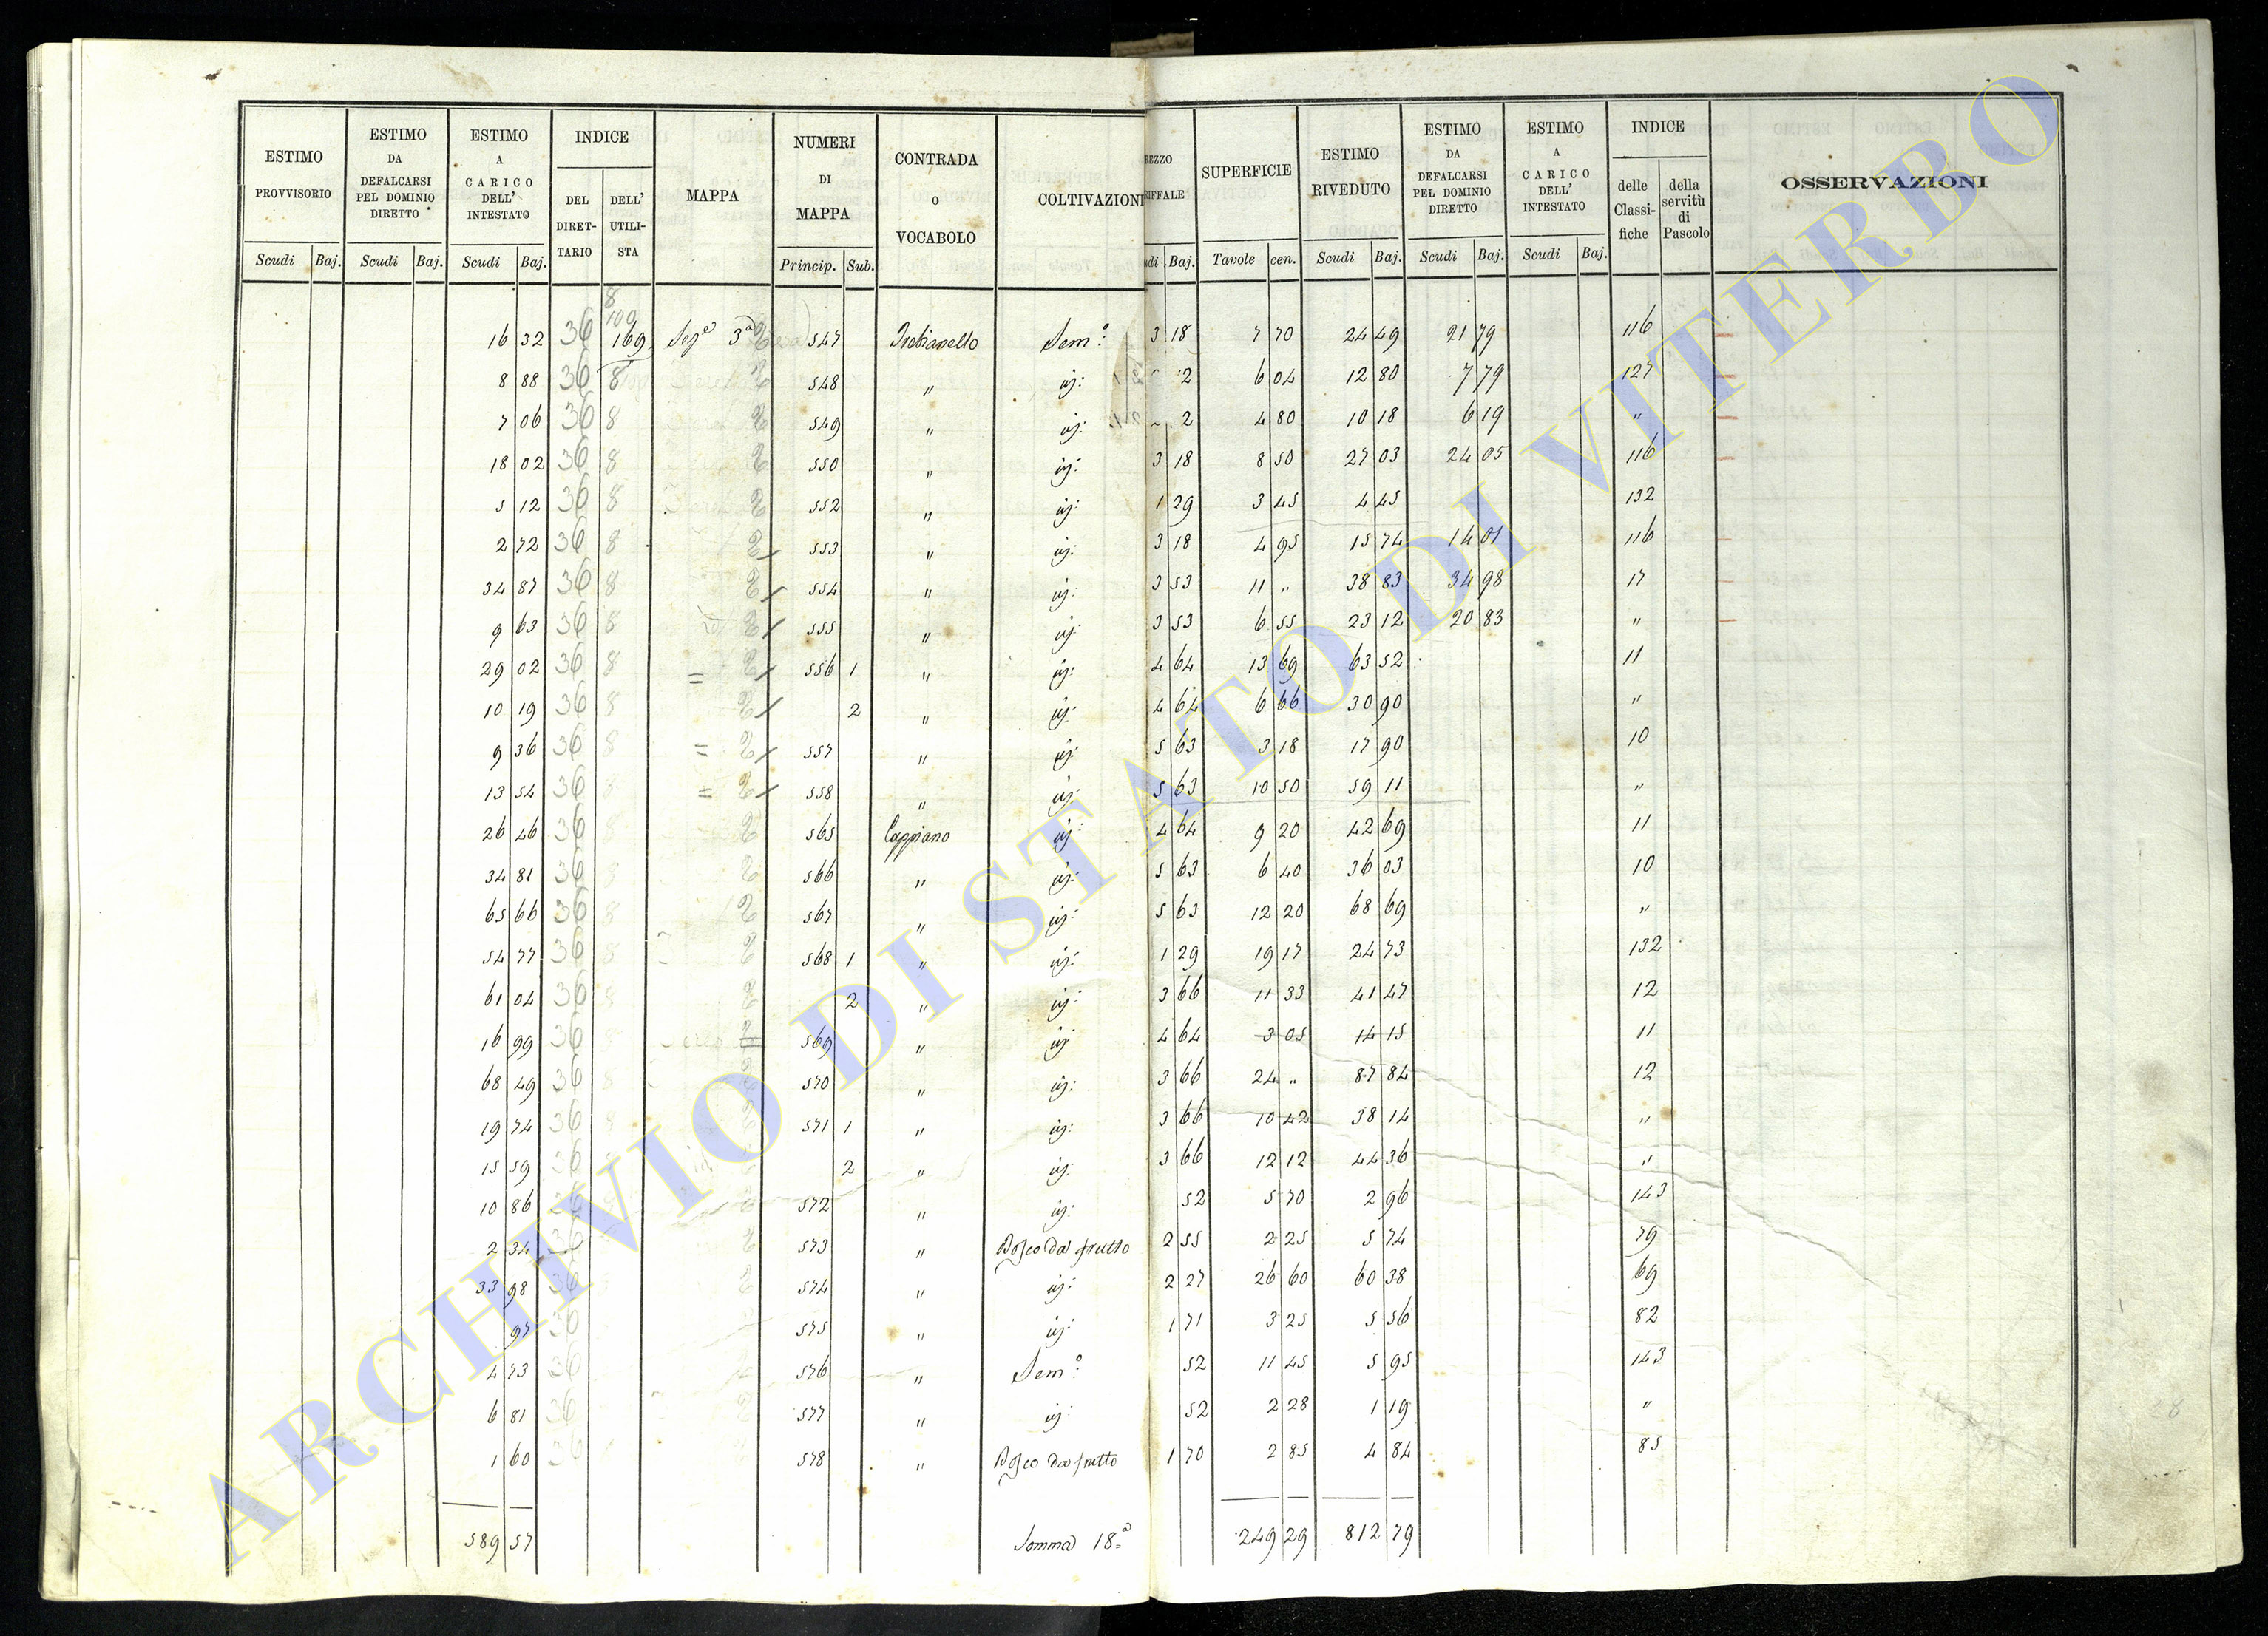 ESTIMO PROVVISORIO | ESTIMO DA DEFALCARSI PEL DOMINIO DIRETTO | ESTIMO A CARICO DELL' INTESTATO | INDICE | MAPPA | NUMERI DI MAPPA | CONTRADA O VOCABOLO | COLTIVAZION | REZZO RIFFALE | SUPERFICIE | ESTIMO RIVEDUTO | ESTIMO DA DEFALCARSI PEL DOMINIO DIRETTO | ESTIMO A CARICO DELL' INTESTATO | INDICE | OSSERVAZIONI
DEL DIRET-TARIO | DELL' UTILI-STA | delle Classi-fiche | della servitù di Pascolo
Scudi | Baj. | Scudi | Baj. | Scudi | Baj. | Princip. | Sub. | di | Baj. | Tavole | cen. | Scudi | Baj. | Scudi | Baj. | Scudi | Baj.
8
100
16 32 36 169 3ª 2 547 Sem.º 3 18 7 70 24 49 21 79 116
8 88 36 8 2 548 " iij: 2 6 04 12 80 7 79 127
7 06 36 8 2 549 " iij: 2 4 80 10 18 6 19 "
18 02 36 8 2 550 " iij: 3 18 8 50 27 03 24 05 116
5 12 36 8 2 552 " iij: 1 29 3 45 4 45 132
2 72 36 8 2 553 " iij: 3 18 4 95 15 74 14 01 116
34 87 36 8 2 554 " iij: 3 53 11 " 38 83 34 98 17
9 63 36 8 2 555 " iij: 3 53 6 55 23 12 20 83 "
29 02 36 8 = 2 556 1 " iij: 4 64 13 69 63 52 11
10 19 36 8 2 2 " iij: 4 64 6 66 30 90 "
9 36 36 8 = 2 557 " iij: 5 63 3 18 17 90 10
13 54 36 8 = 2 558 " iij: 5 63 10 50 59 11 "
26 46 36 8 2 565 Cappiano iij: 4 64 9 20 42 69 11
34 81 36 8 2 566 " iij: 5 63 6 40 36 03 10
65 66 36 8 2 567 " iij: 5 63 12 20 68 69 "
54 77 36 8 2 568 1 " iij: 1 29 19 17 24 73 132
61 04 36 8 2 2 " iij: 3 66 11 33 41 47 12
16 99 36 569 " iij 4 64 3 05 14 15 11
68 49 36 570 " iij: 3 66 24 " 87 84 12
19 74 36 571 1 " iij: 3 66 10 42 38 14 "
15 59 36 2 " iij: 3 66 12 12 44 36 "
10 86 36 572 " iij: 52 5 70 2 96 143
2 34 36 573 " Bosco da frutto 2 55 2 25 5 74 79
33 98 36 574 " iij: 2 27 26 60 60 38 69
97 36 575 " iij: 1 71 3 25 5 56 82
4 73 36 576 " Sem.º 52 11 45 5 95 143
6 81 36 577 " iij 52 2 28 1 19 "
1 60 36 578 " Bosco da frutto 1 70 2 85 4 84 85
589 57 Somma 18ª 249 29 812 79
ARCHIVIO DI STATO DI VITERBO